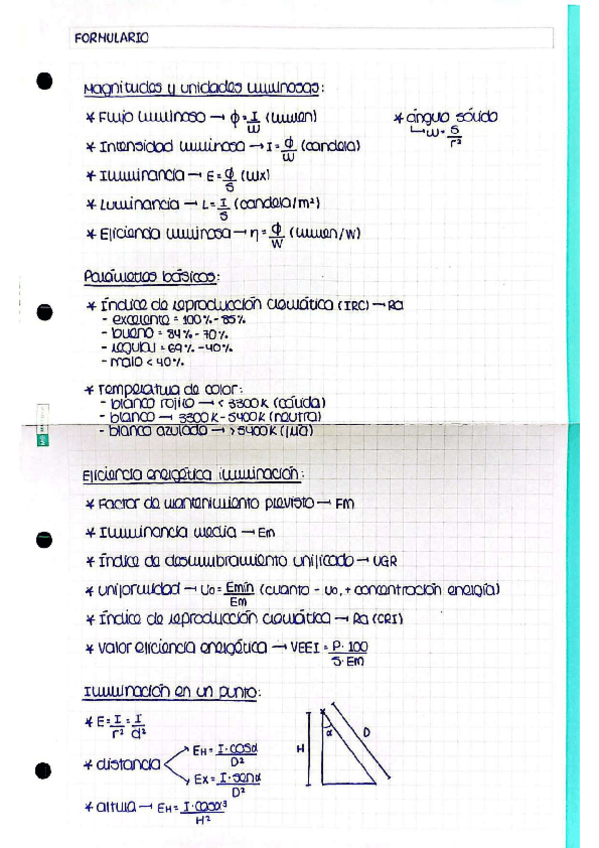 FORMULARIO
Magnitudes y unidades luminosas:
* Flujo luminoso → ϕ = I/W (lumen)
* ángulo sólido
↳ w = S/r²
* Intensidad luminosa → I = ϕ/W (candela)
* Iluminancia → E = ϕ/S (lux)
* Luminancia → L = I/S (candela/m²)
* Eficiencia luminosa → η = ϕ/W (lumen/W)
Parámetros básicos:
* Índice de reproducción cromática (IRC) → Ra
- excelente = 100% - 85%
- bueno = 84% - 70%
- regular = 69% - 40%
- malo < 40%
* Temperatura de color:
- blanco rojito → < 3300K (cálida)
- blanco → 3300K - 5400K (neutra)
- blanco azulado → > 5400K (fría)
Eficiencia energética iluminación:
* Factor de mantenimiento previsto → FM
* Iluminancia media → Em
* Índice de deslumbramiento unificado → UGR
* Uniformidad → Uo = Emín/Em (cuanto - Uo, + concentración energía)
* Índice de reproducción cromática → Ra (CRI)
* Valor eficiencia energética → VEEI = P·100/S·Em
Iluminación en un punto:
* E = I/r² = I/d²
* distancia
EH = I·cosα/D²
EX = I·senα/D²
* altura → EH = I·cosα³/H²
H
α
D